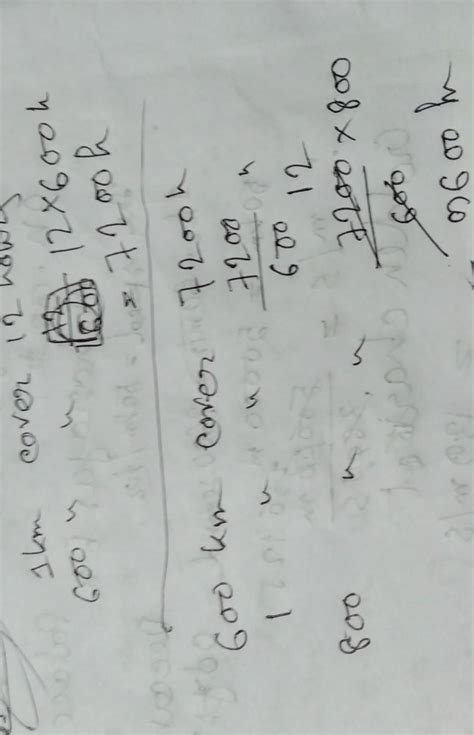 1km cover 12 hours
600 " 12×600h
= 7200h
600 km cover 7200h
1 " " 7200 h
600
12
800 " " 7200×800
600
= 9600 h